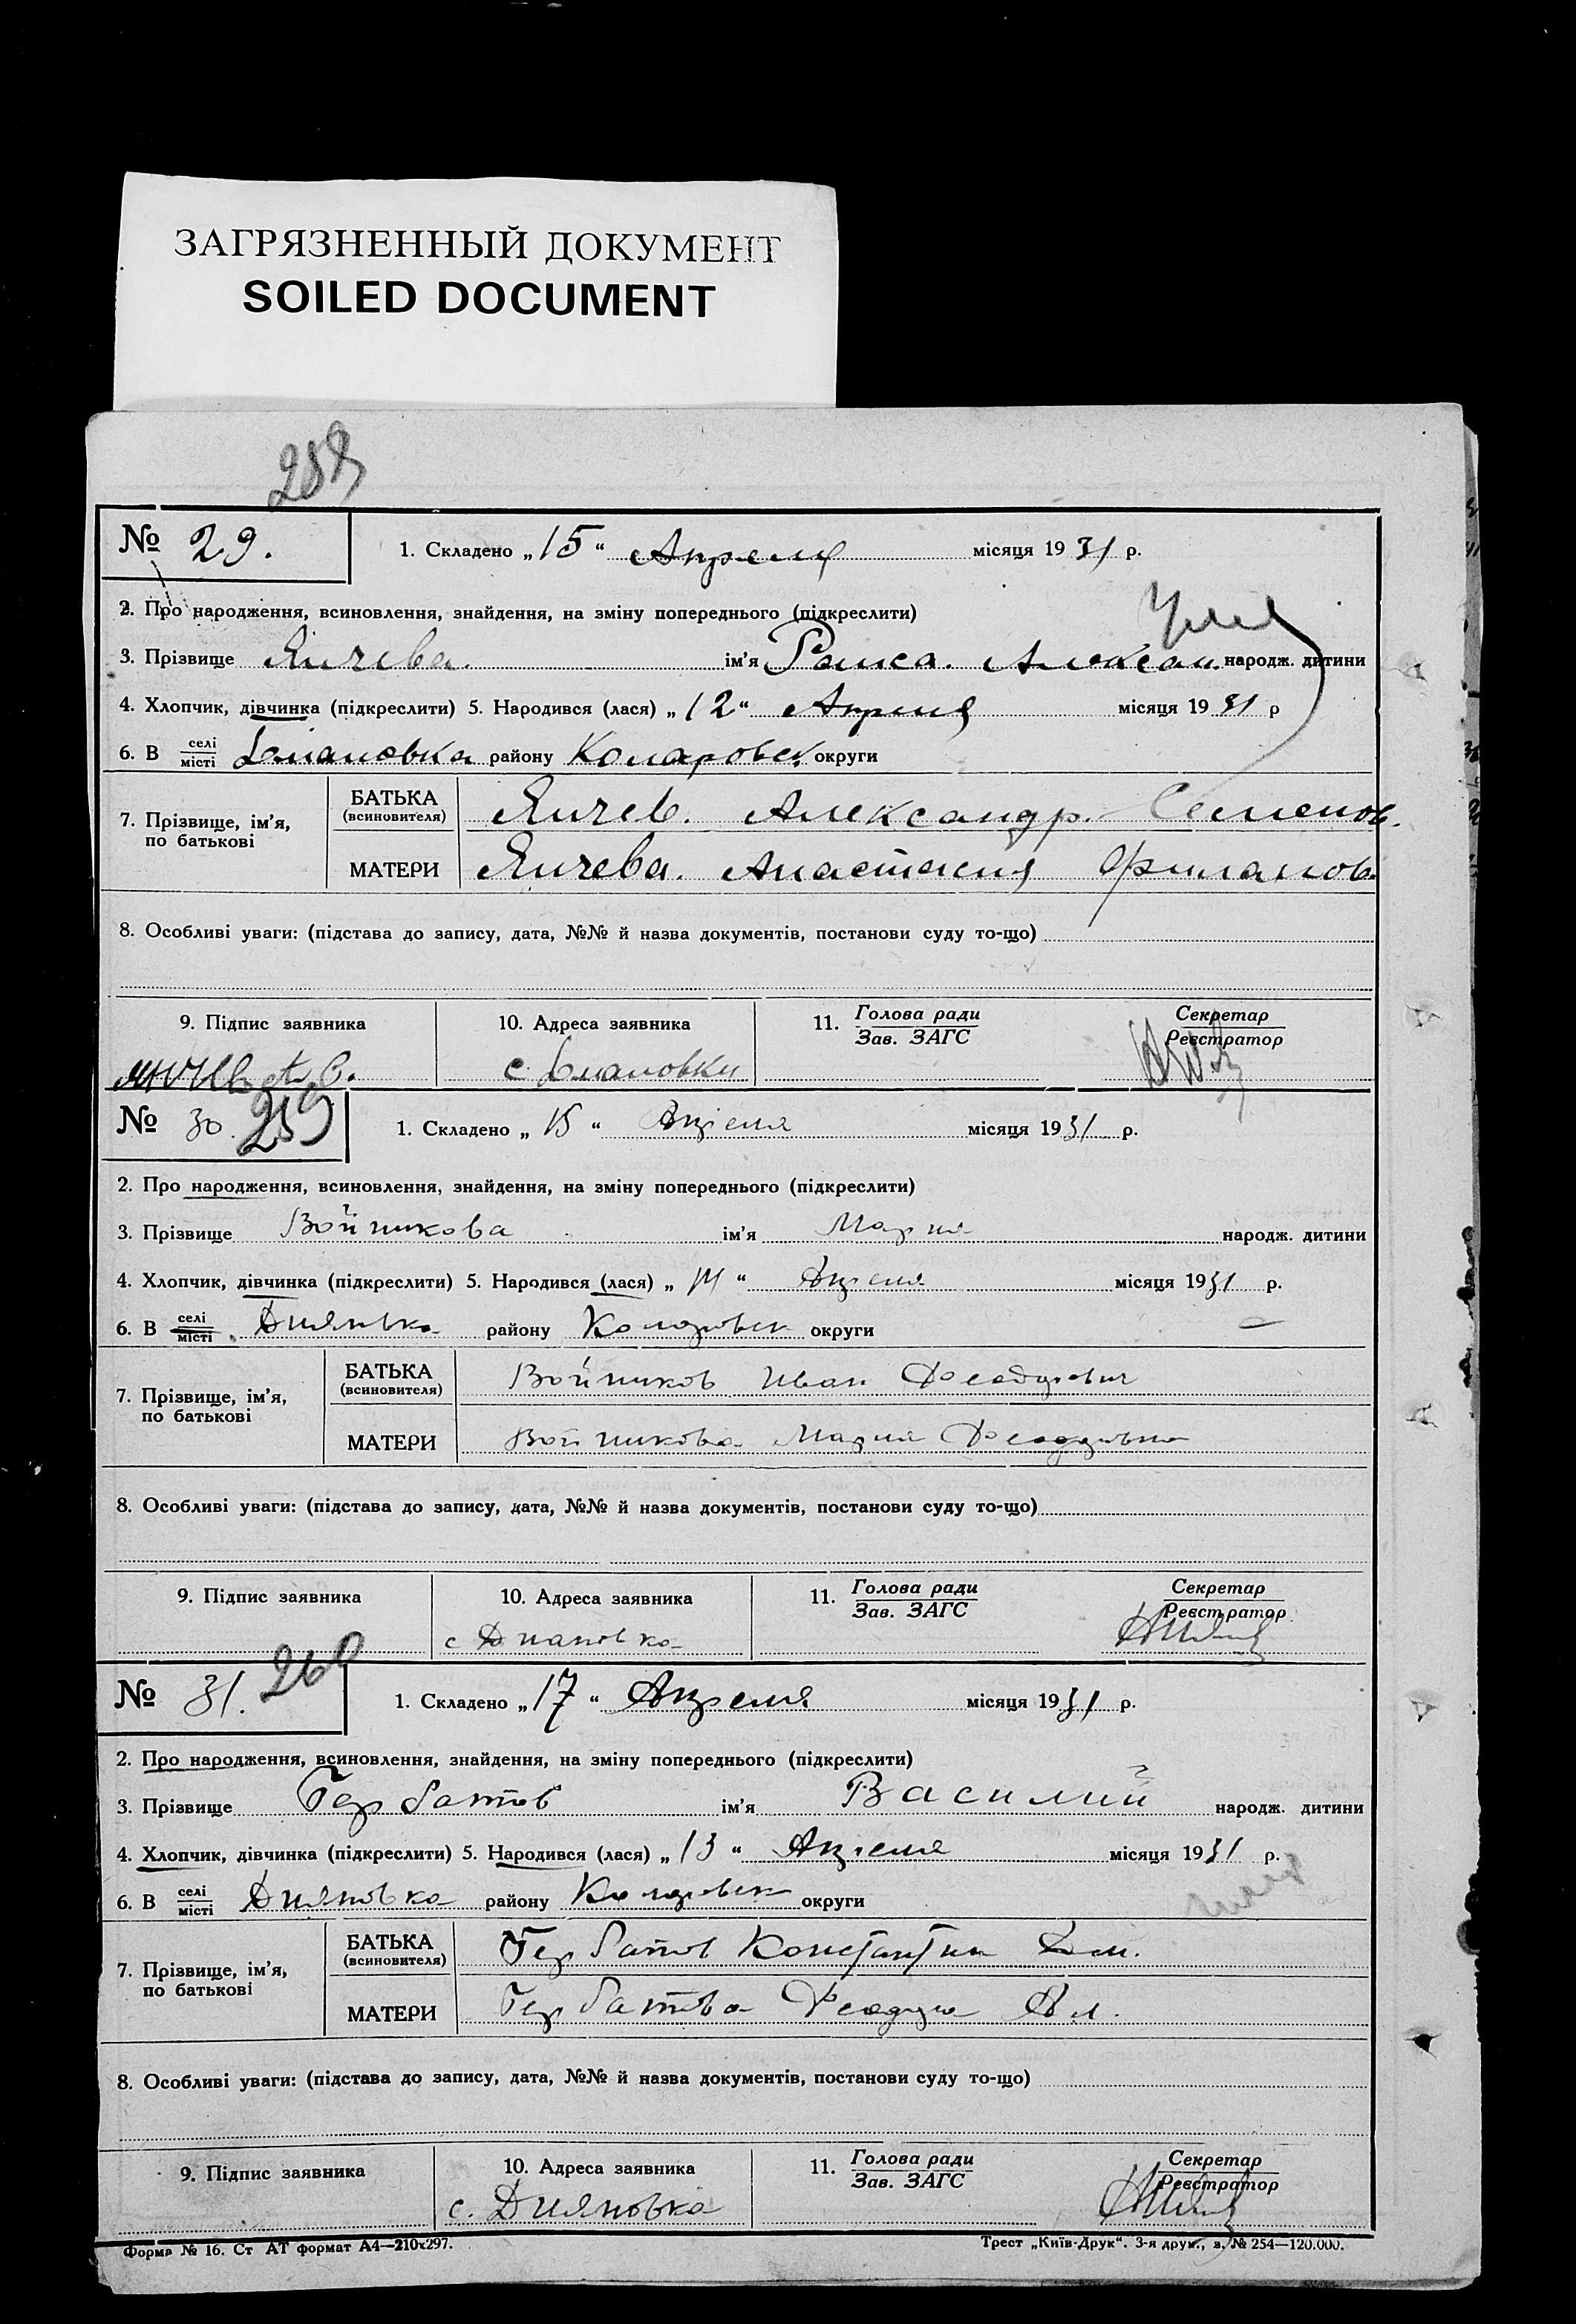 ЗАГРЯЗНЕННЫЙ ДОКУМЕНТ
SOILED DOCUMENT
№ 29.
1. Складено „15“ Апреля місяця 1931 р.
2. Про народження, всиновлення, знайдення, на зміну попереднього (підкреслити)
3. Прізвище Янчева. ім’я Раиса. Алексан. народж. дитини
4. Хлопчик, дівчинка (підкреслити) 5. Народився (лася) „12“ Апреля місяця 1931 р
6. В селі місті району Коларовск. округи
7. Прізвище, ім’я, по батькові
БАТЬКА (всиновителя) Янчев. Александр. Семенов.
МАТЕРИ Янчева. Анастасия
8. Особливі уваги: (підстава до запису, дата, №№ й назва документів, постанови суду то-що)
9. Підпис заявника 10. Адреса заявника 11. Голова ради Зав. ЗАГС Секретар Реєстратор
с.
№ 30. 259
1. Складено „15“ Апреля місяця 1931 р.
2. Про народження, всиновлення, знайдення, на зміну попереднього (підкреслити)
3. Прізвище Войникова ім’я Мария народж. дитини
4. Хлопчик, дівчинка (підкреслити) 5. Народився (лася) „14“ Апреля місяця 1931 р.
6. В селі місті Дияновка району Коларовск округи
7. Прізвище, ім’я, по батькові
БАТЬКА (всиновителя) Войников Иван
МАТЕРИ Войникова Мария
8. Особливі уваги: (підстава до запису, дата, №№ й назва документів, постанови суду то-що)
9. Підпис заявника 10. Адреса заявника 11. Голова ради Зав. ЗАГС Секретар Реєстратор
с Диановка
№ 31. 260
1. Складено „17“ Апреля місяця 1931 р.
2. Про народження, всиновлення, знайдення, на зміну попереднього (підкреслити)
3. Прізвище Гербатов ім’я Василий народж. дитини
4. Хлопчик, дівчинка (підкреслити) 5. Народився (лася) „13“ Апреля місяця 1931 р.
6. В селі місті Дияновка району Коларовск округи
7. Прізвище, ім’я, по батькові
БАТЬКА (всиновителя) Гербатов Константин Дм.
МАТЕРИ Гербатова
8. Особливі уваги: (підстава до запису, дата, №№ й назва документів, постанови суду то-що)
9. Підпис заявника 10. Адреса заявника 11. Голова ради Зав. ЗАГС Секретар Реєстратор
с. Дияновка
Форма № 16. Ст АТ формат А4—210х297. Трест „Київ-Друк“. 3-я друк., з. № 254—120.000.